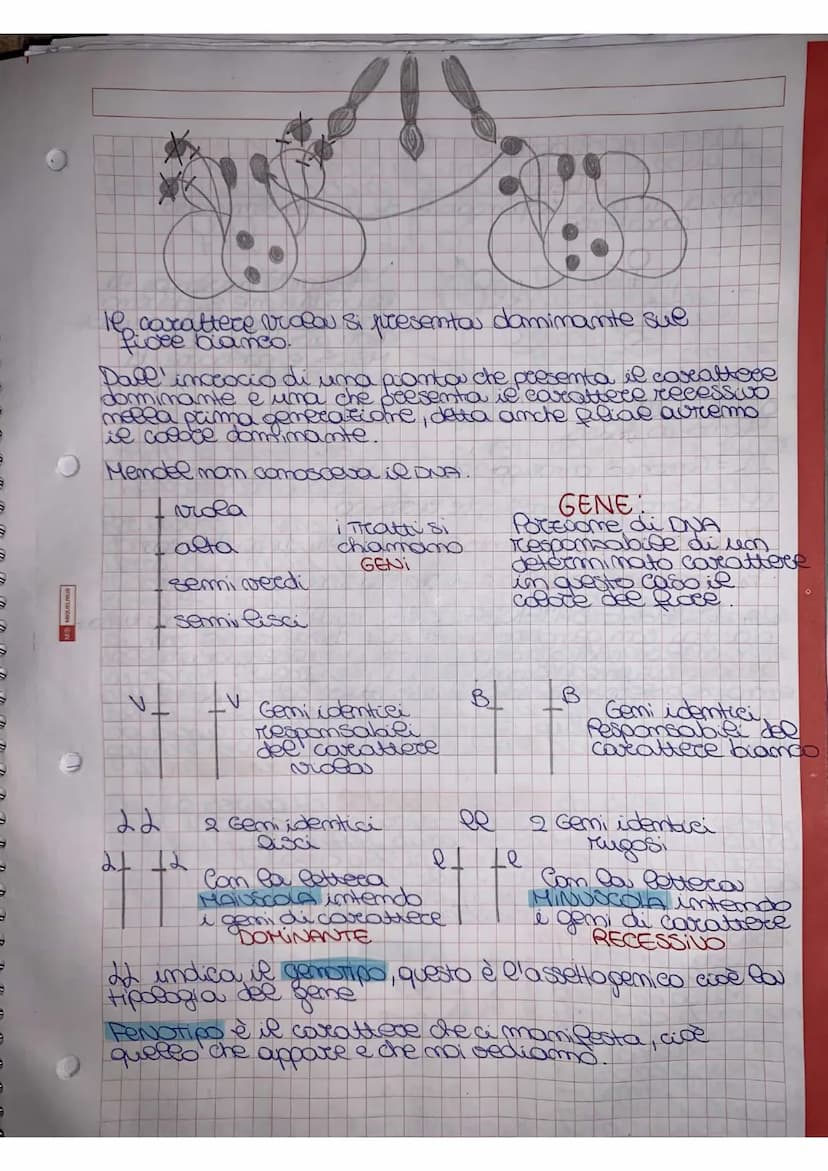 Il carattere viola si presenta dominante sul
fiore bianco.
Dall'incrocio di una pianta che presenta il carattere
dominante e una che presenta il carattere recessivo
nella prima generazione, detta anche filiae avremo
il colore dominante.
Mendel non conosceva il DNA.
viola
alta
semi verdi
semi lisci
i tratti si
chiamano
GENI
GENE:
Porzione di DNA
responsabile di un
determinato carattere
in questo caso il
colore del fiore.
V V Geni identici
responsabili
del carattere
viola
B B Geni identici
Responsabili del
carattere bianco
LL 2 Geni identici
lisci
L L Con la lettera
MAIUSCOLA intendo
i geni di carattere
DOMINANTE
ll 2 Geni identici
rugosi
l l Con la lettera
MINUSCOLA intendo
i geni di carattere
RECESSIVO
LL indica il genotipo, questo è l'assetto genico cioè la
tipologia del gene
FENOTIPO è il carattere che ci manifesta, cioè
quello che appare e che noi vediamo.